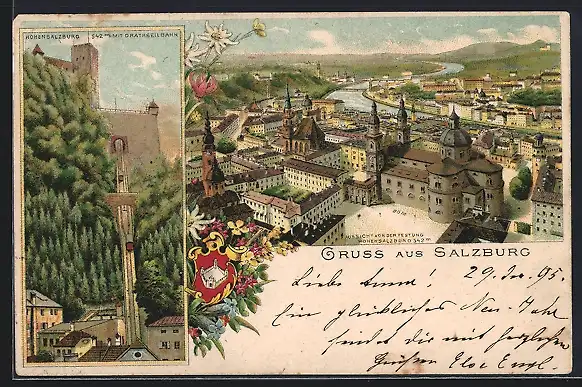 HOHENSALZBURG 542 m MIT DRATHSEILBAHN
DOM
AUSSICHT VON DER FESTUNG
HOHENSALZBURG 542 m
GRUSS AUS SALZBURG
Liebe Anna! 29. 95.
Ein glückliches Neu-Jahr
sendet dir mit herzlichen
Grüßen